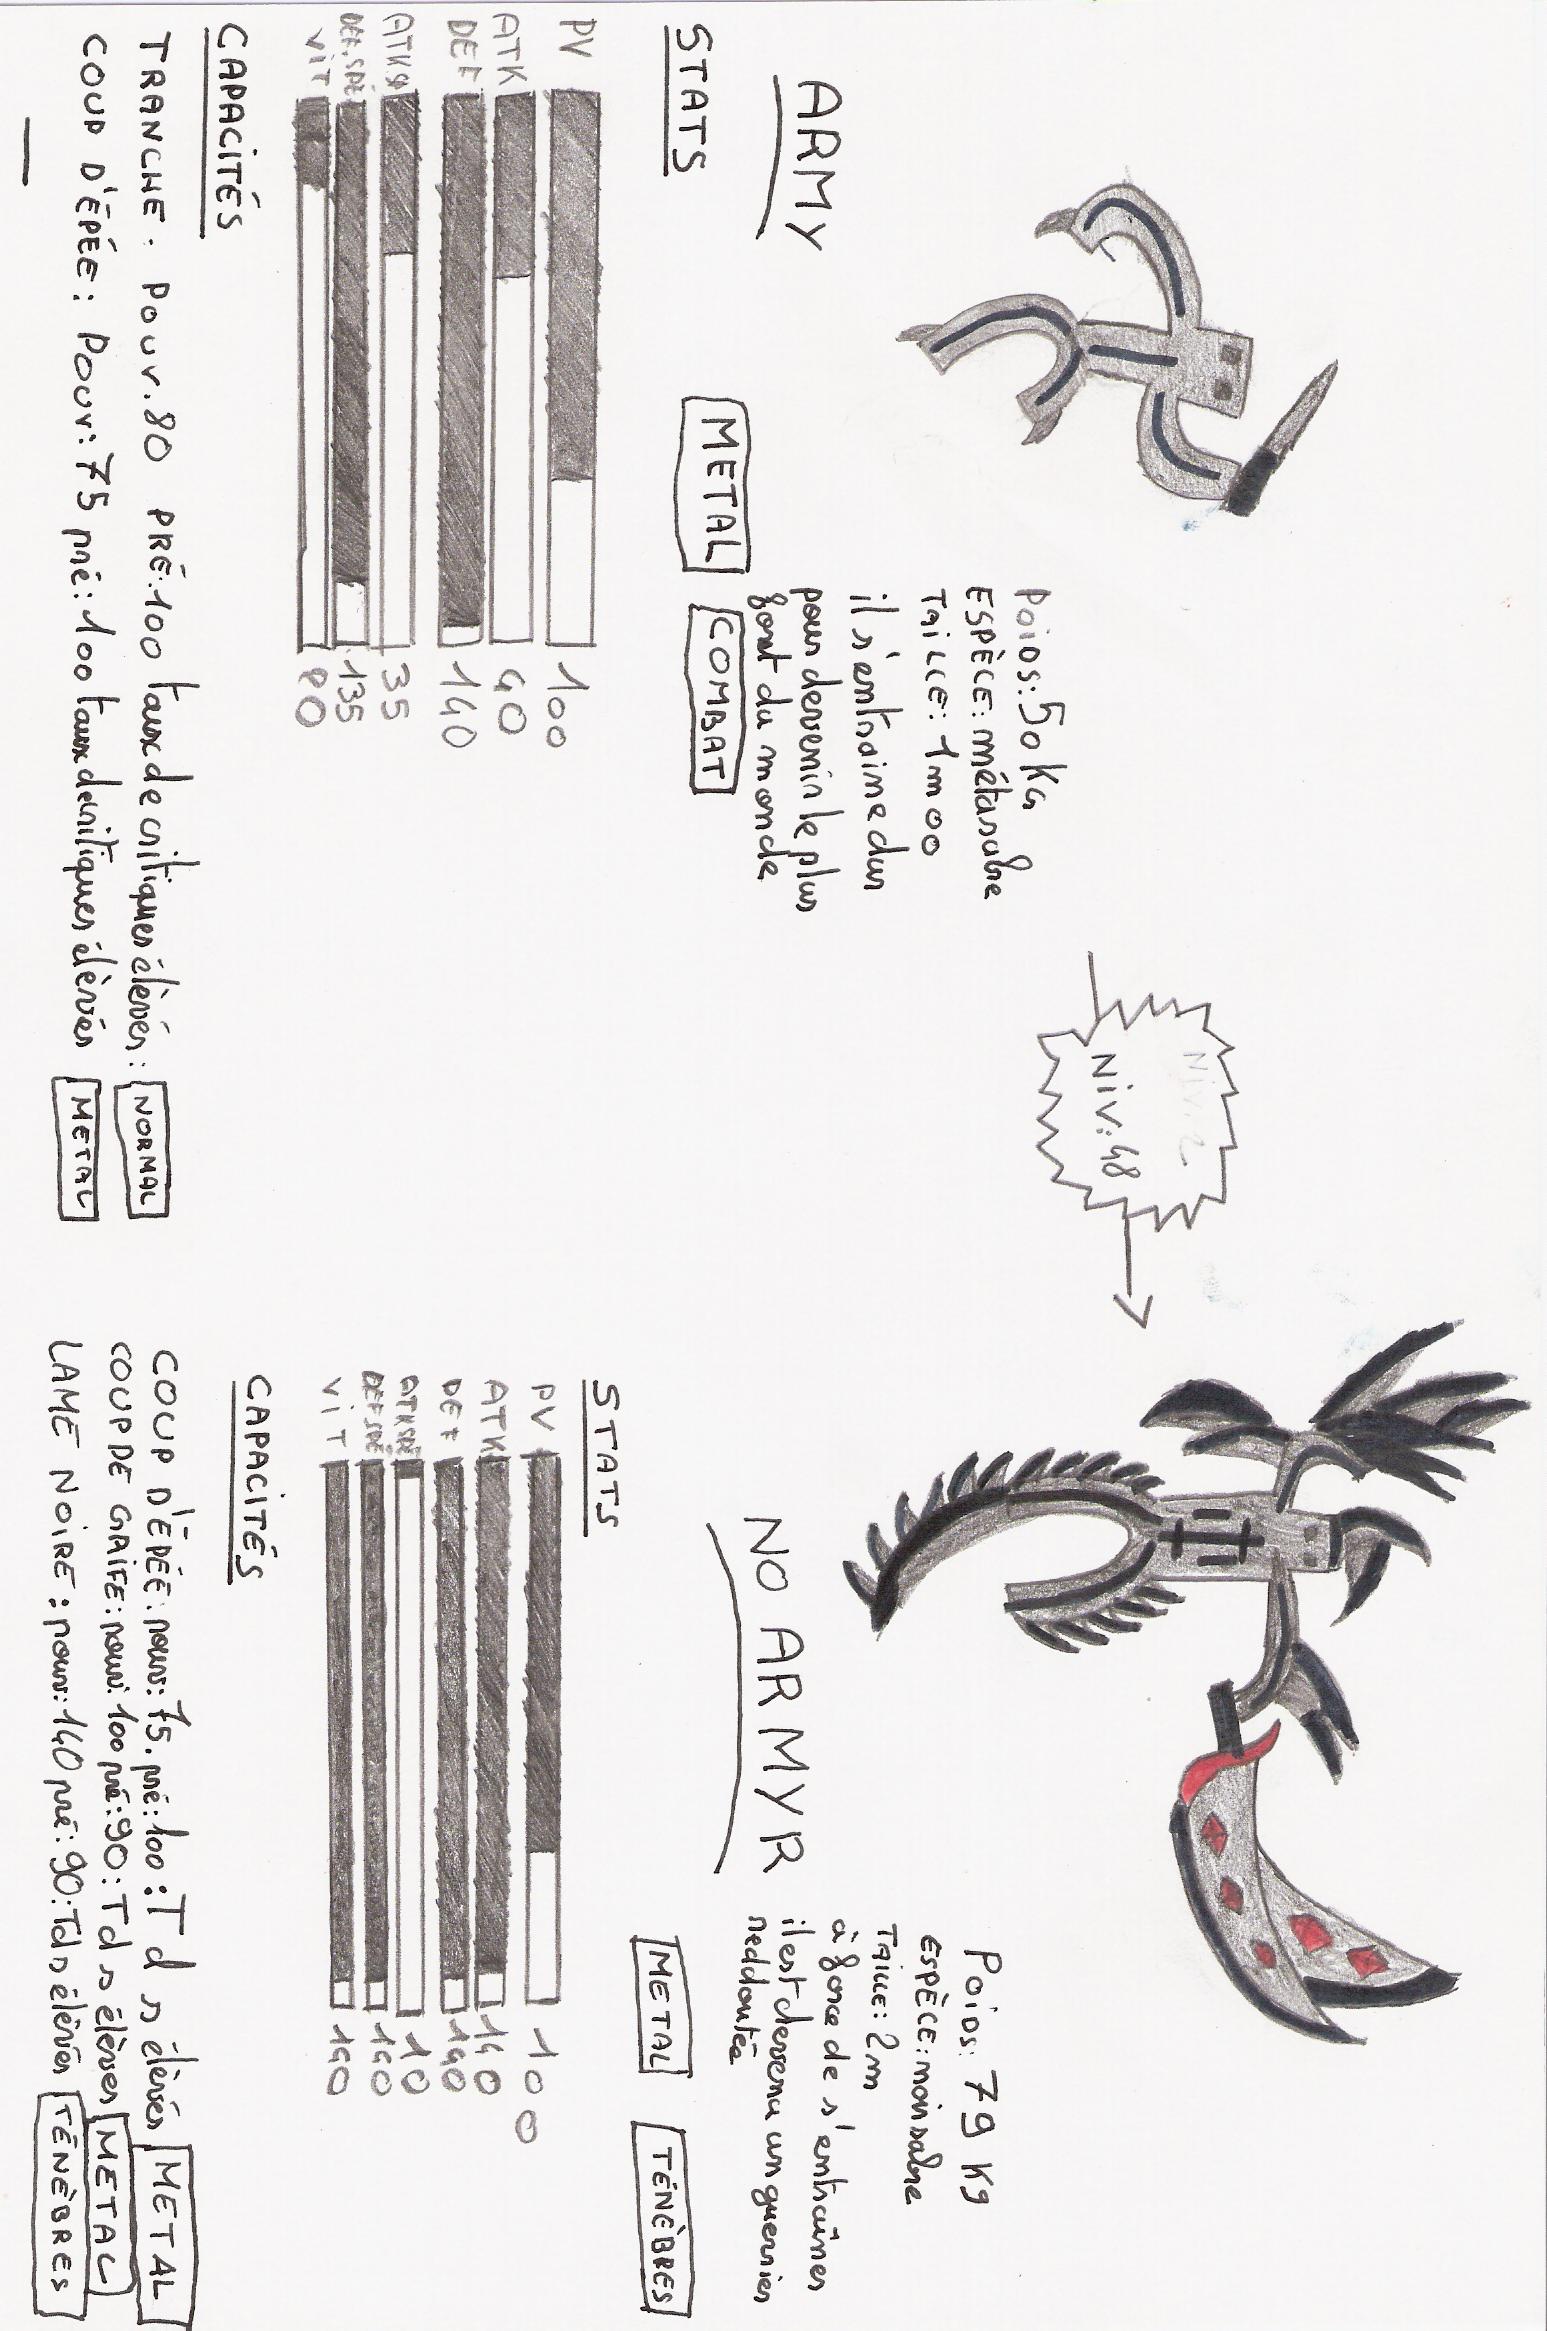 ARMY
Poids: 50 KG
ESPÈCE: métasabre
TAILLE: 1m00
il s'entraine dur
pour devenir le plus
fort du monde
STATS
METAL
COMBAT
PV 100
ATK 40
DEF 140
ATKS 35
DEF.SPÉ 135
ViT 80
CAPACITÉS
TRANCHE: Pouv.80 PRÉ:100 taux de critiques élevés: NORMAL
COUP D'ÉPÉE: Pouv: 75 pré: 100 taux de critiques élevés METAL
Niv: 2
Niv: 48
NOARMYR
Poids: 79 Kg
ESPÈCE: noirsabre
TAILLE: 2m
à force de s'entraîner
il est devenu un guerrier
reddoutée
METAL
TÉNÈBRES
STATS
PV 100
ATK 140
DEF 140
ATKSPÉ 10
DEFSPÉ 140
ViT 140
CAPACITÉS
COUP D'ÉPÉE: pouv: 75. pré: 100: T d s élevés METAL
COUP DE GRIFE: pouv: 100 pré: 90: T d s élevés METAL
LAME NOIRE: pouv: 140 pré: 90: Tds élevés TÉNÈBRES